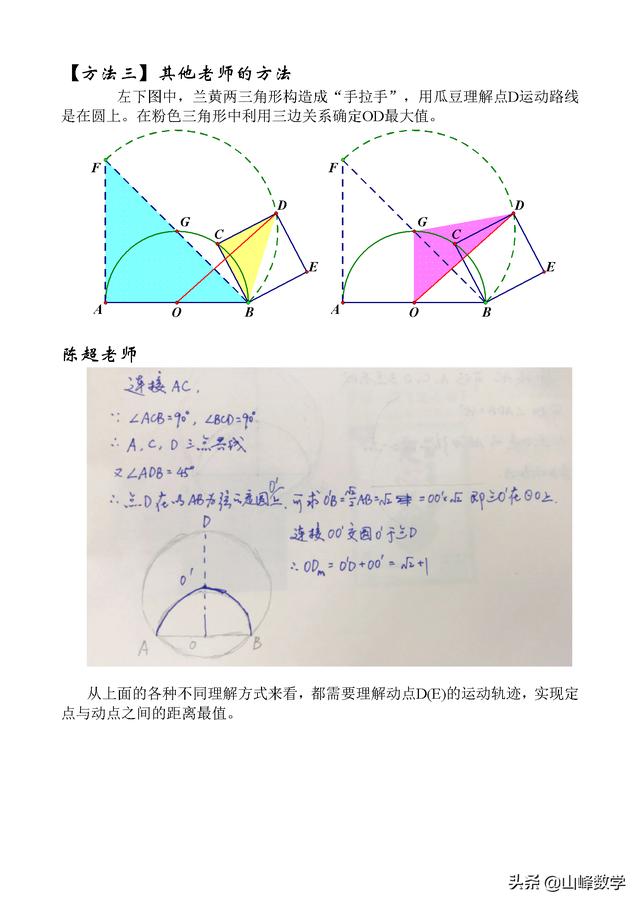 【方法三】其他老师的方法
左下图中，兰黄两三角形构造成“手拉手”，用瓜豆理解点D运动路线
是在圆上。在粉色三角形中利用三边关系确定OD最大值。
F
G
D
C
E
A
O
B
F
G
D
C
E
A
O
B
陈超老师
连接AC，
∵ ∠ACB=90°，∠BCD=90°
∴ A，C，D三点共线
又∠ADB=45°
∴ 点D在以AB为弦的定圆O'上，可求O'B=√2/2AB=√2
=OO'=√2 即点O'在⊙O上
连接OO'交圆O'于点D
∴ ODm=O'D+OO'=√2+1
D
O'
A
O
B
从上面的各种不同理解方式来看，都需要理解动点D(E)的运动轨迹，实现定
点与动点之间的距离最值。
头条 @山峰数学